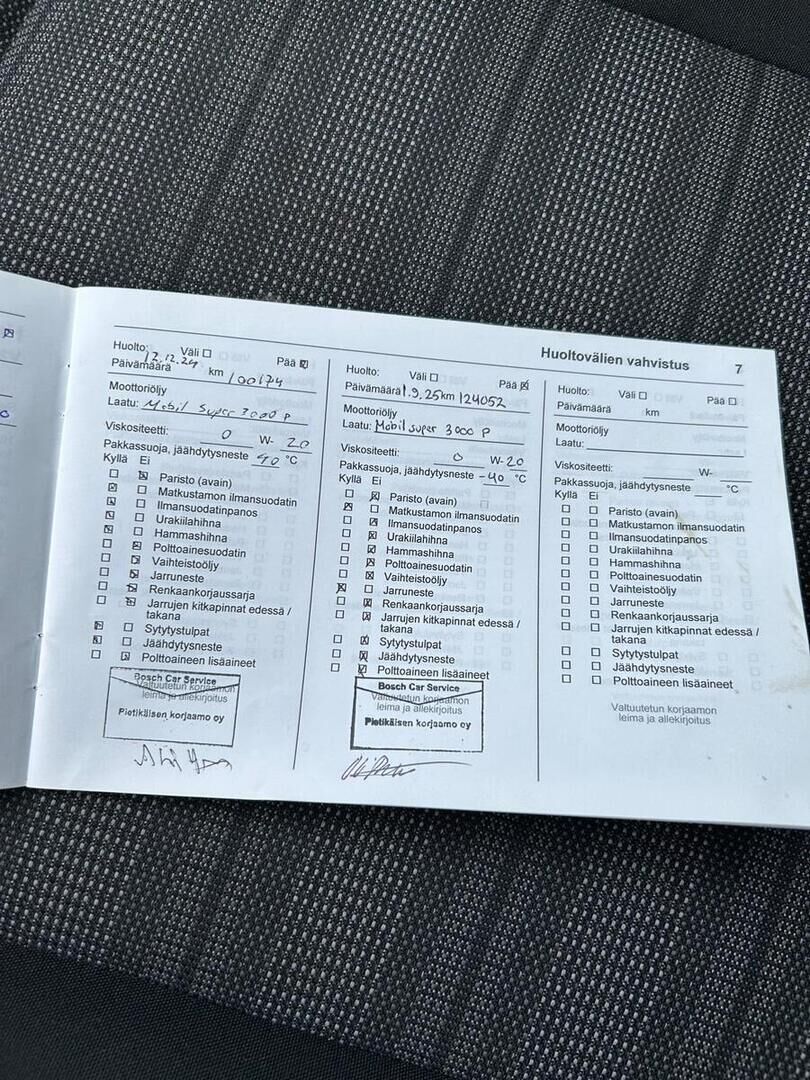 Huoltovälien vahvistus 7
Huolto: Väli Pää
Päivämäärä 12.12.24 km 100174
Moottoriöljy
Laatu: Mobil super 3000 P
Viskositeetti: 0 W- 20
Pakkassuoja, jäähdytysneste 40 °C
Kyllä Ei
Paristo (avain)
Matkustamon ilmansuodatin
Ilmansuodatinpanos
Urakiilahihna
Hammashihna
Polttoainesuodatin
Vaihteistoöljy
Jarruneste
Renkaankorjaussarja
Jarrujen kitkapinnat edessä /
takana
Sytytystulpat
Jäähdytysneste
Polttoaineen lisäaineet
Bosch Car Service
Valtuutetun korjaamon
leima ja allekirjoitus
Pietikäisen korjaamo oy
Huolto: Väli Pää
Päivämäärä 1.9.25 km 124052
Moottoriöljy
Laatu: Mobil super 3000 P
Viskositeetti: 0 W- 20
Pakkassuoja, jäähdytysneste -40 °C
Kyllä Ei
Paristo (avain)
Matkustamon ilmansuodatin
Ilmansuodatinpanos
Urakiilahihna
Hammashihna
Polttoainesuodatin
Vaihteistoöljy
Jarruneste
Renkaankorjaussarja
Jarrujen kitkapinnat edessä /
takana
Sytytystulpat
Jäähdytysneste
Polttoaineen lisäaineet
Bosch Car Service
Valtuutetun korjaamon
leima ja allekirjoitus
Pietikäisen korjaamo oy
Huolto: Väli Pää
Päivämäärä km
Moottoriöljy
Laatu:
Viskositeetti: W-
Pakkassuoja, jäähdytysneste °C
Kyllä Ei
Paristo (avain)
Matkustamon ilmansuodatin
Ilmansuodatinpanos
Urakiilahihna
Hammashihna
Polttoainesuodatin
Vaihteistoöljy
Jarruneste
Renkaankorjaussarja
Jarrujen kitkapinnat edessä /
takana
Sytytystulpat
Jäähdytysneste
Polttoaineen lisäaineet
Valtuutetun korjaamon
leima ja allekirjoitus